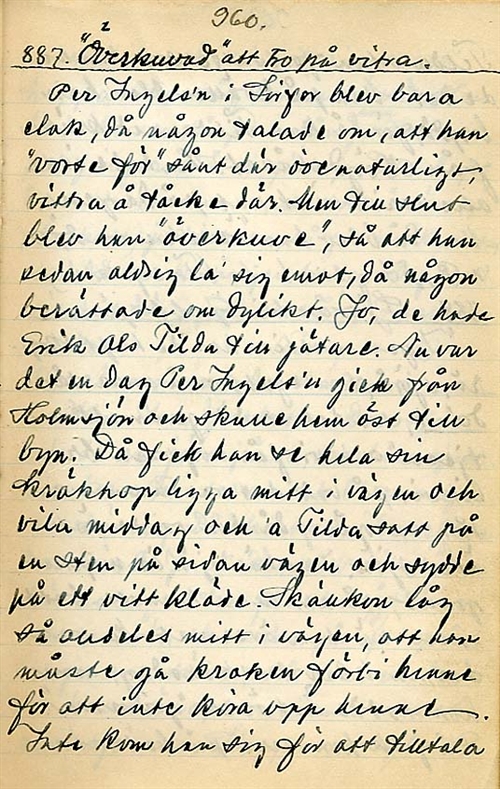 960.
2
887. "Överkuvad" att tro på vitra.
Per Ingels'n i Sörfors blev bara
elak, då någon talade om, att han
"vorte för" sånt där övernaturligt,
vittra å tåcke där. Men till slut
blev han "överkuve", så att han
sedan aldrig la' sig emot, då någon
berättade om dylikt. Jo, de hade
Erik Ols Tilda till jätare. Nu var
det en dag Per Ingels'n gick från
Holmsjön och skulle hem öst till
byn. Då fick han se hela sin
kräkhop ligga mitt i vägen och
vila middag och a Tilda satt på
en sten på sidan vägen och sydde
på ett vitt kläde. Skäukon låg
så audeles mitt i vägen, att han
måste gå kraken förbi henne
för att inte köra upp henne.
Inte kom han sig för att tilltala